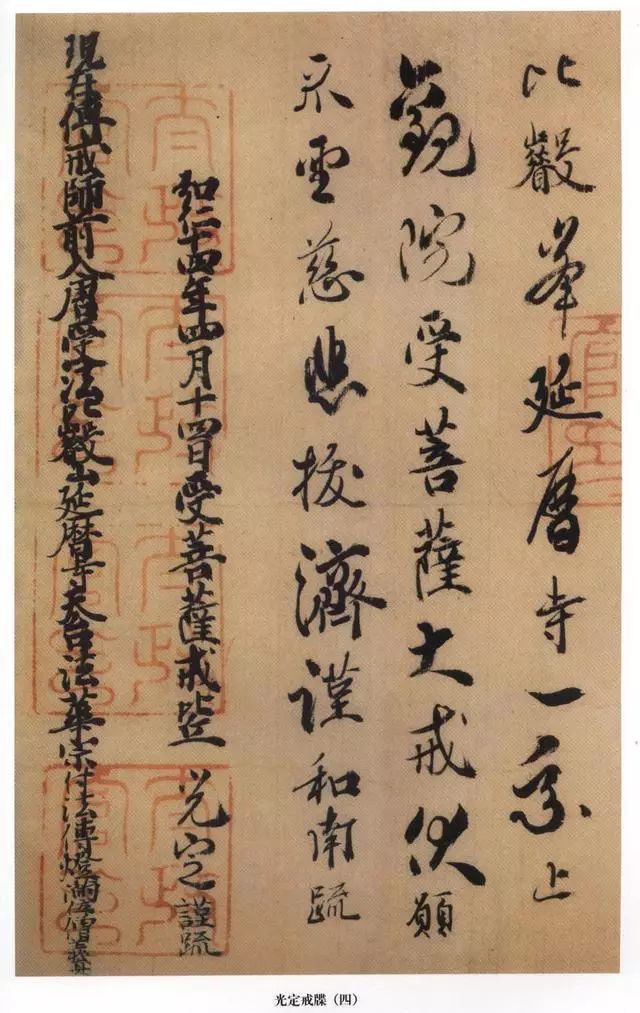 比叡峯延暦寺一乘止
觀院受菩薩大戒伏願
示垂慈悲拔濟謹和南疏
弘仁十四年四月十四日受菩薩戒 光定謹疏
現在傳戒師前入唐受法叡山延暦寺天台法華宗付法傳燈滿位僧義真
光定戒牒（四）